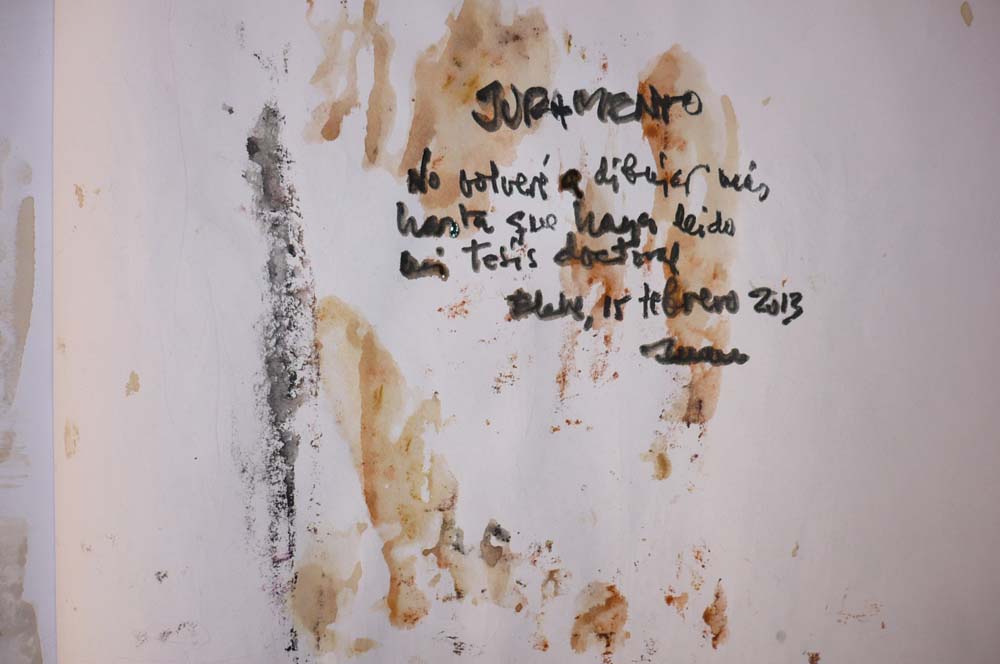 JURAMENTO
No volveré a dibujar más
hasta que haya leido
mi tesis doctoral
15 febrero 2013
Juan